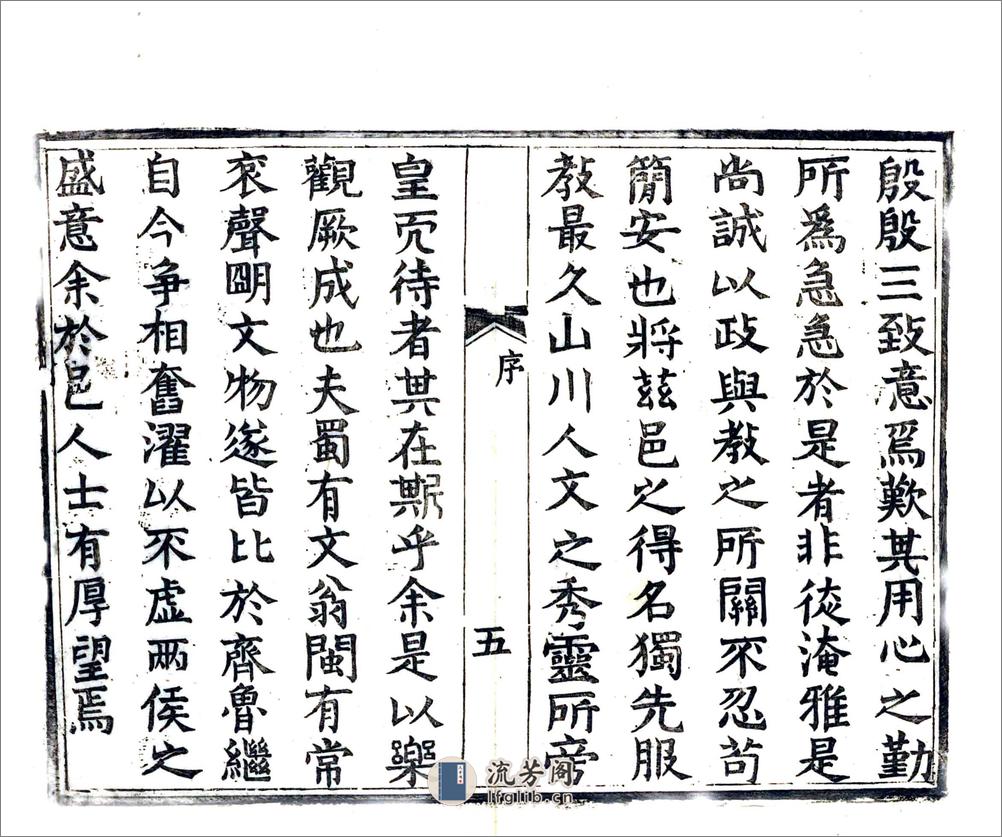 殷殷三致意焉歎其用心之勤
所爲急急於是者非徒淹雅是
尚誠以政與教之所關不忍苟
簡安也將茲邑之得名獨先服
教最久山川人文之秀靈所旁
序
五
皇而待者其在斯乎余是以樂
觀厥成也夫蜀有文翁閩有常
袞聲明文物遂皆比於齊魯繼
自今爭相奮濯以不虛兩侯之
盛意余於邑人士有厚望焉
流芳阁
lfglib.cn